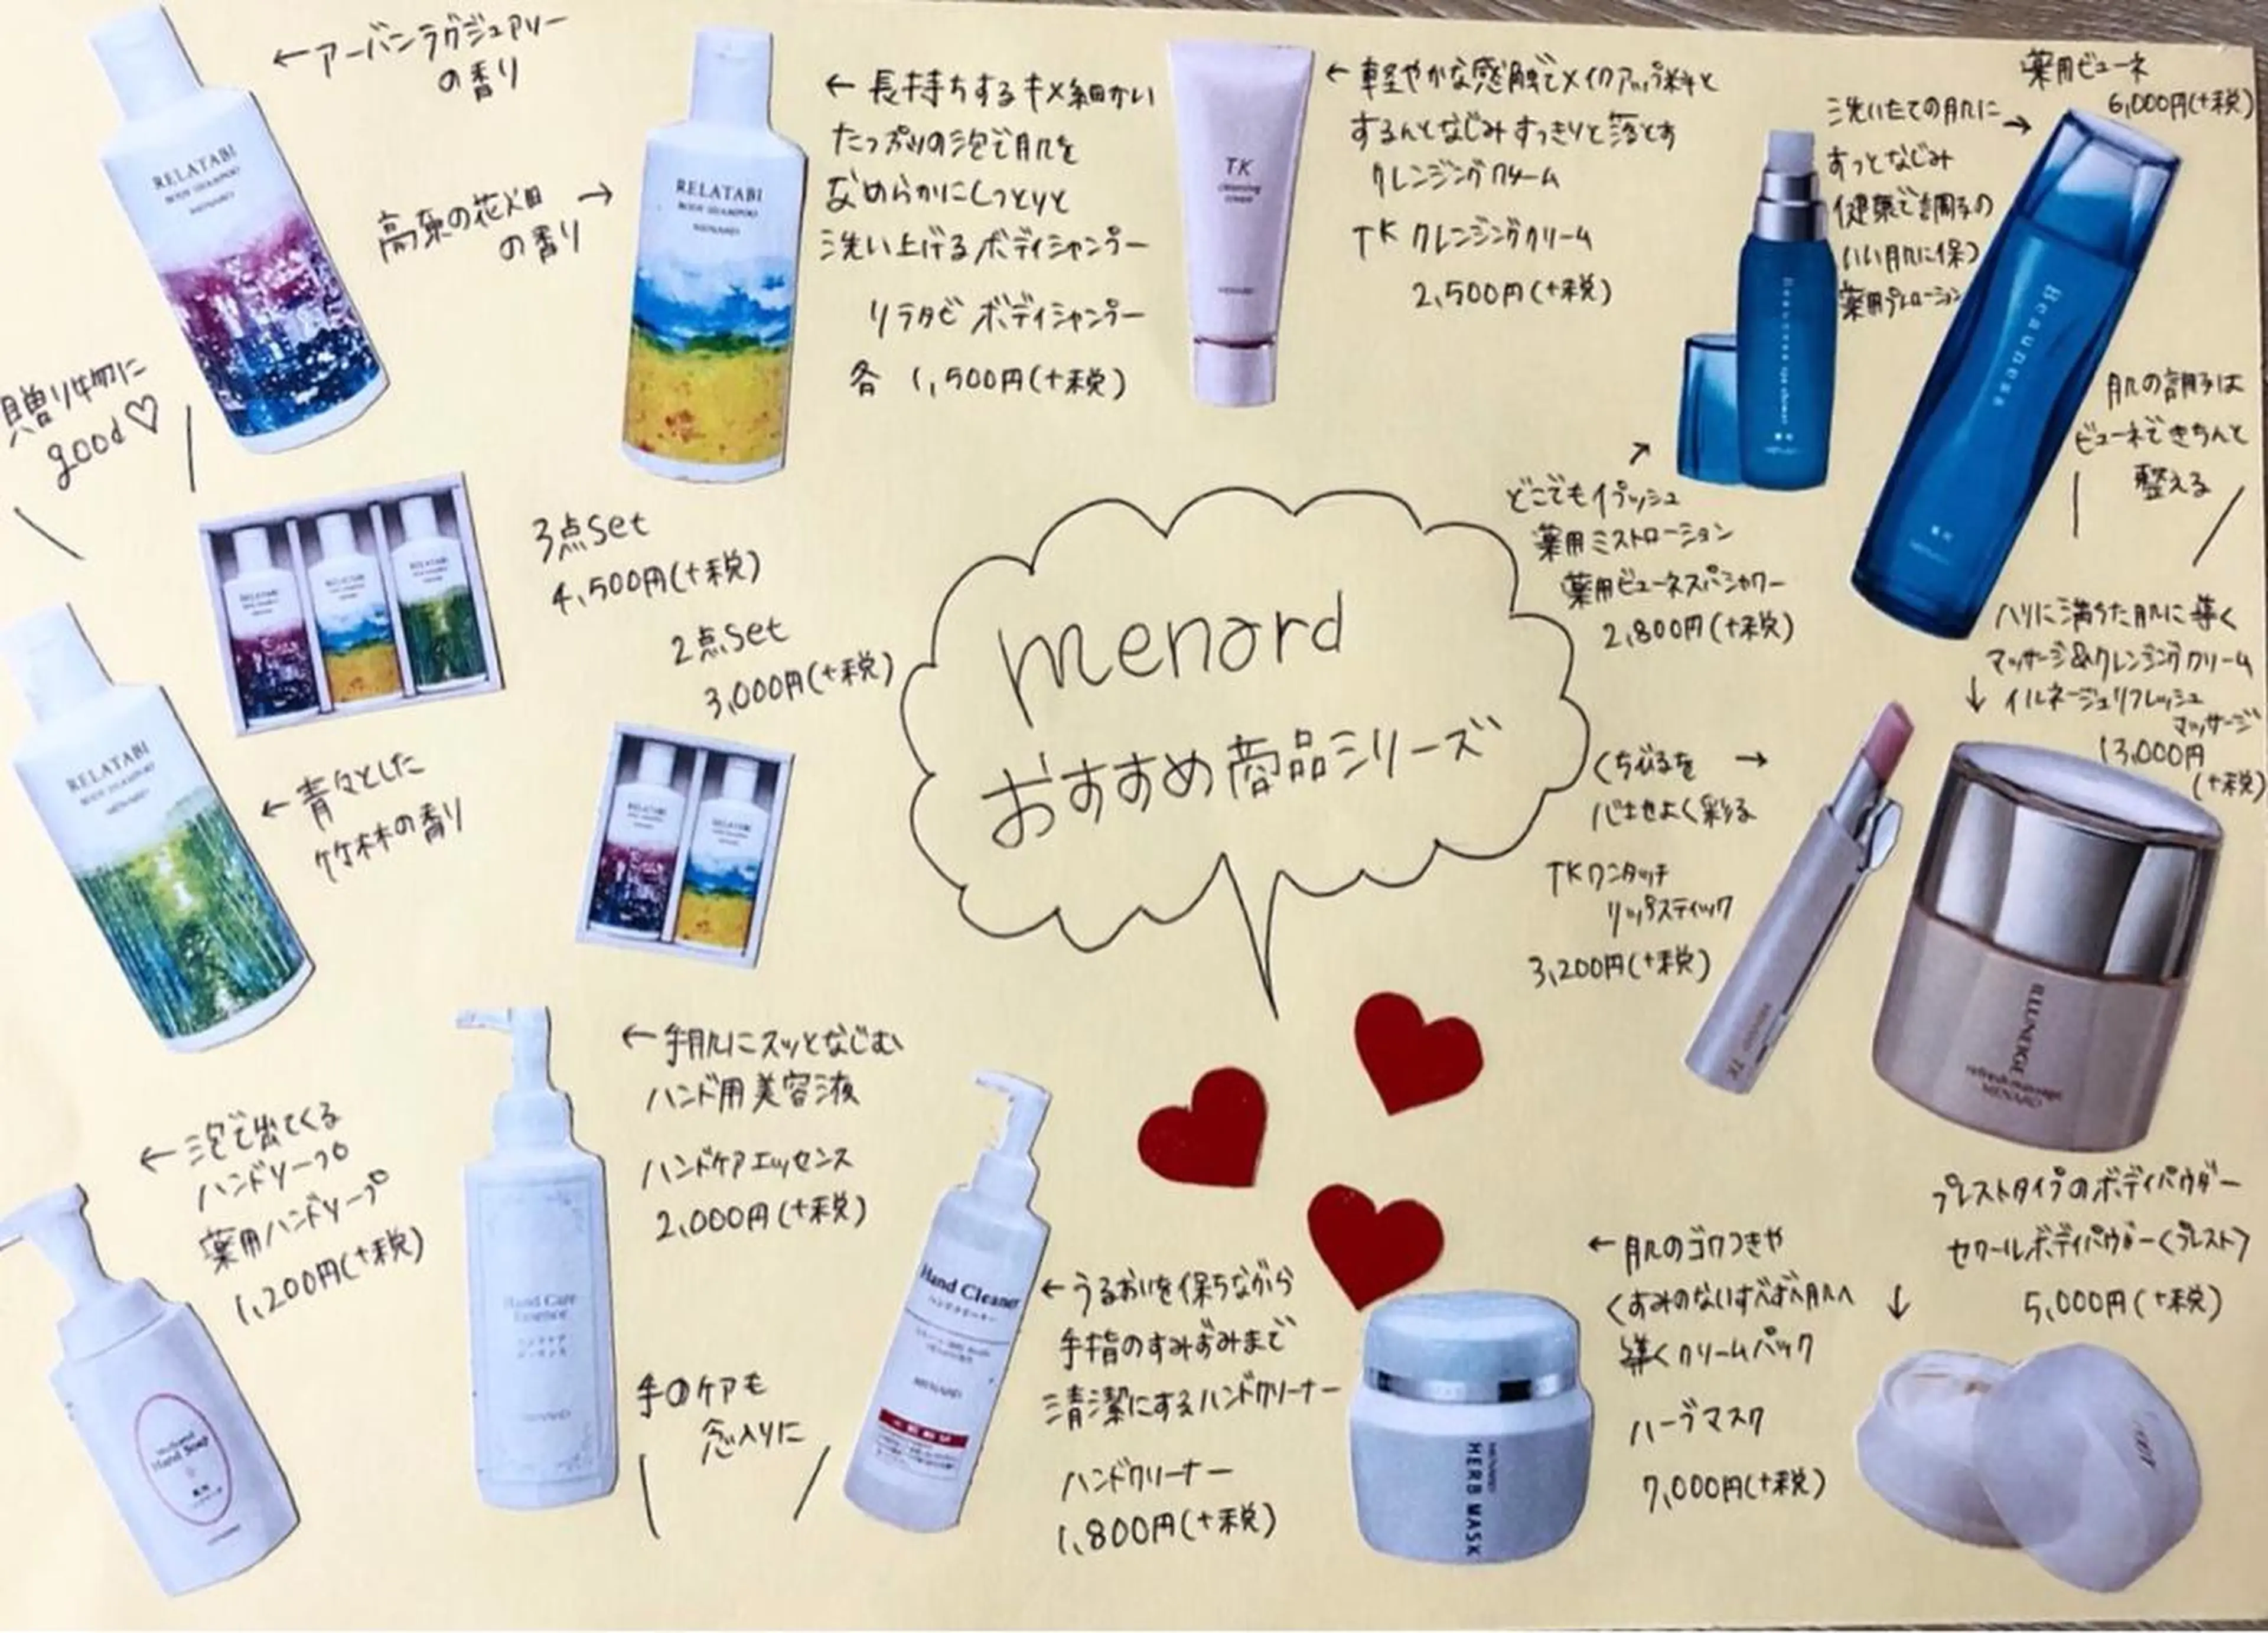 menard
おすすめ商品シリーズ
←アーバンラグジュアリー
の香り
RELATABI
BODY SHAMPOO
MENARD
高原の花畑 →
の香り
RELATABI
BODY SHAMPOO
MENARD
← 長持ちするキメ細かい
たっぷりの泡で肌を
なめらかにしっとりと
洗い上げるボディシャンプー
リラタビ ボディシャンプー
各 1,500円(+税)
TK
cleansing
cream
MENARD
← 軽やかな感触でメイクアップ料と
するんとなじみすっきりと落とす
クレンジングクリーム
TK クレンジングクリーム
2,500円(+税)
薬用ビューネ
6,000円(+税)
洗いたての肌に →
すっとなじみ
健康で調子の
いい肌に保つ
薬用プレローション
Beauness
肌の調子は
ビューネできちんと
整える
どこでもイプッシュ
薬用ミストローション
薬用ビューネスパシャワー
2,800円(+税)
贈り物に
good♡
3点set
4,500円(+税)
2点set
3,000円(+税)
RELATABI
BODY SHAMPOO
MENARD
← 青々とした
竹林の香り
ハリに満ちた肌に導く
マッサージ&クレンジングクリーム
↓ イルネージュリフレッシュ
マッサージ
13,000円
(+税)
ILLUNEIGE
refresh massage
MENARD
くちびるを →
心地よく彩る
TKワンタッチ
リップスティック
3,200円(+税)
MENARD TK
← 泡で出てくる
ハンドソープ
薬用ハンドソープ
1,200円(+税)
Medicated
Hand Soap
薬用
← 手肌にスッとなじむ
ハンド用美容液
ハンドケアエッセンス
2,000円(+税)
Hand Care
Essence
ハンドケア
エッセンス
MENARD
手のケアも
念入りに
Hand Cleaner
ハンドクリーナー
MENARD
← うるおいを保ちながら
手指のすみずみまで
清潔にするハンドクリーナー
ハンドクリーナー
1,800円(+税)
MENARD
HERB MASK
← 肌のゴワつきや
くすみのないすべすべ肌へ
導くクリームパック
ハーブマスク
7,000円(+税)
プレストタイプのボディパウダー
セワールボディパウダー<プレスト>
↓ 5,000円(+税)